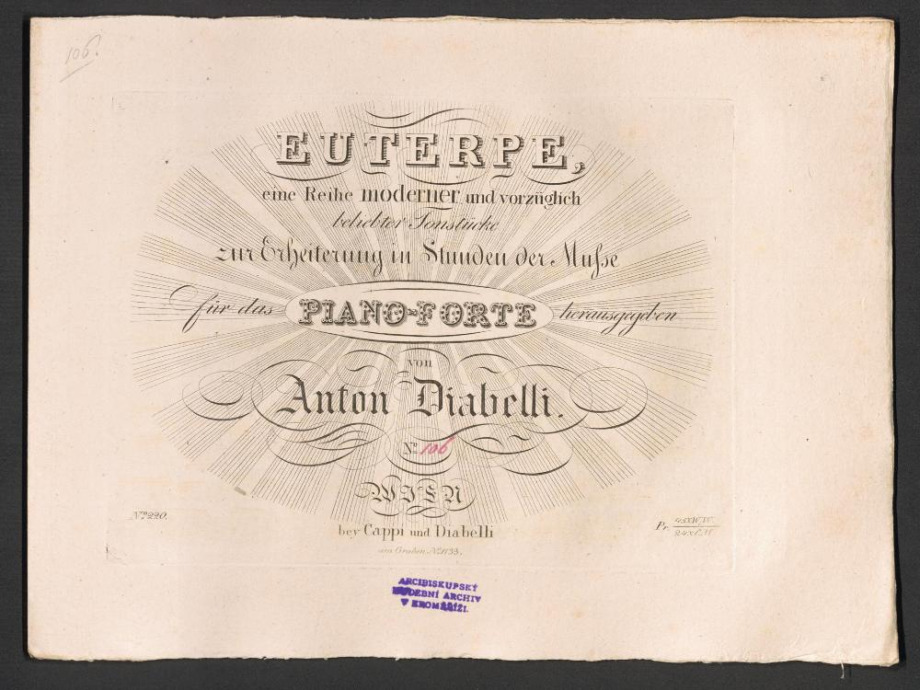 106.
EUTERPE,
eine Reihe moderner und vorzüglich
beliebter Tonstücke
zur Erheiterung in Stunden der Muſse
für das PIANO-FORTE herausgegeben
von
Anton Diabelli.
No. 106
WIEN
No. 220.
bey Cappi und Diabelli
Pr.
am Graben No. 1133.
ARCIBISKUPSKÝ
HUDEBNÍ ARCHIV
V KROMĚŘÍŽI.